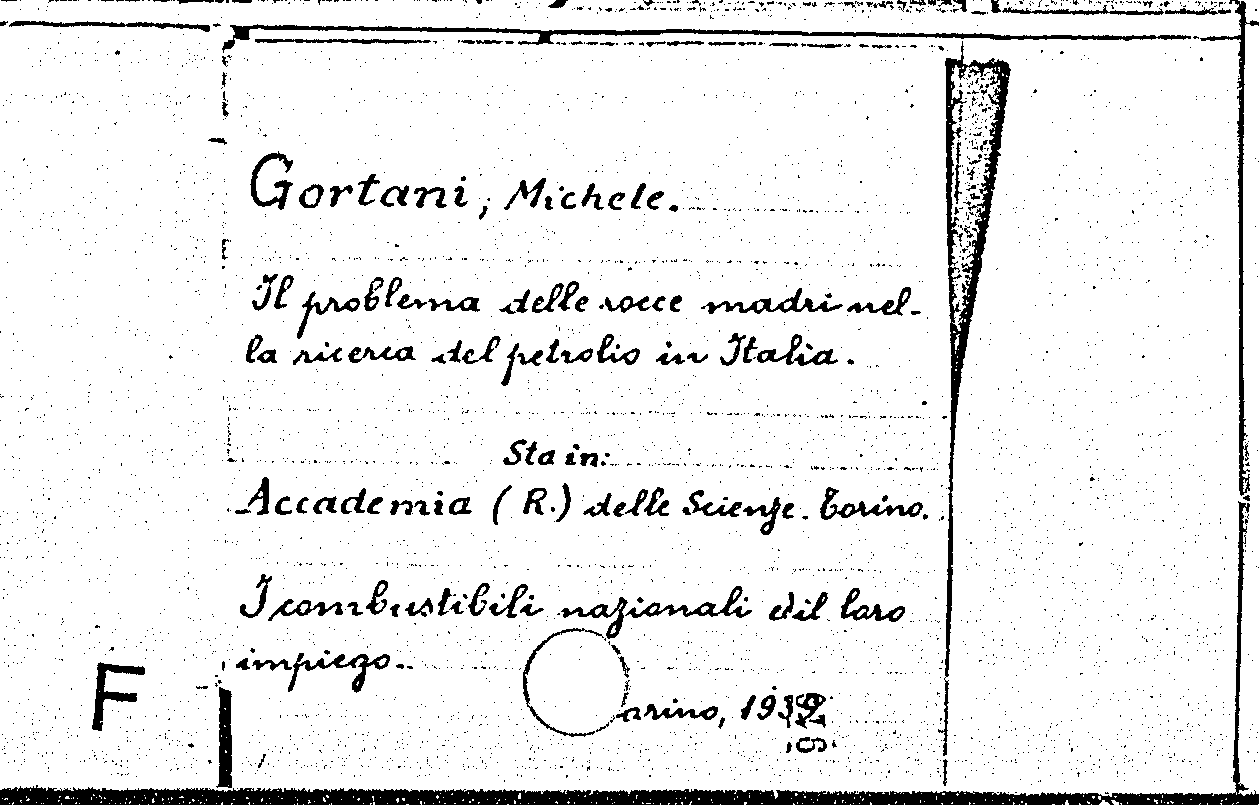 Gortani, Michele.
Il problema delle rocce madri nel-
la ricerca del petrolio in Italia.
Sta in:
Accademia (R.) delle Scienze. Torino.
I combustibili nazionali ed il loro
impiego.
F